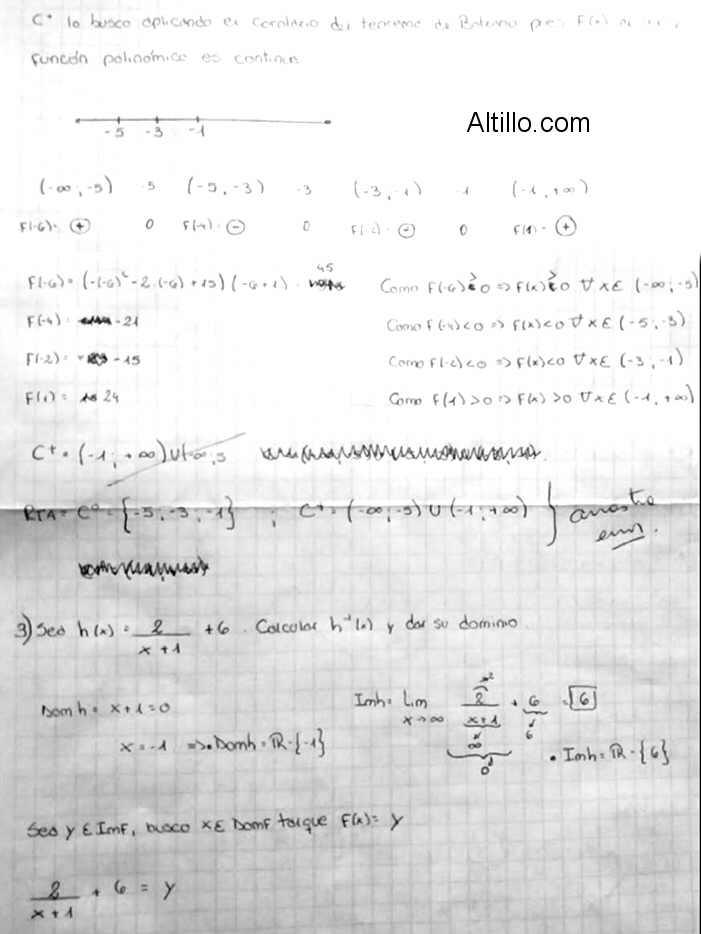 C⁺ lo busco aplicando el Corolario del teorema de Bolzano pues F(x) al
función polinómica es continua
Altillo.com
-5 -3 -1
(-∞;-5) -5 (-5,-3) -3 (-3,-1) -1 (-1,+∞)
F(-6)= ⊕ 0 F(-4)= ⊖ 0 F(-2)= ⊖ 0 F(1)= ⊕
F(-6) = (-(-6)² - 2.(-6) + 15) (-6+1) = 45
Como F(-6)>0 => F(x)>0 ∀ x ε (-∞;-5)
F(-4) = -21
Como F(-4)<0 => F(x)<0 ∀ x ε (-5;-3)
F(-2) = -15
Como F(-2)<0 => F(x)<0 ∀ x ε (-3,-1)
F(1) = 24
Como F(1)>0 => F(x)>0 ∀ x ε (-1,+∞)
C⁺ = (-1;+∞) U (-∞;5
RTA = C⁰ = {-5;-3;-1} ; C⁺ = (-∞;-5) U (-1;+∞) } arrastra
error.
3) Sea h(x) = 2/(x+1) + 6. Calcular h⁻¹(x) y dar su dominio.
Dom h = x+1=0
Imh = Lim x→∞ 2/(x+1) + 6 = 6
x=-1 => • Domh = ℝ-{-1}
∞ 6
0
• Imh = ℝ-{6}
Sea y ε ImF, busco x ε DomF tal que F(x)= y
2/(x+1) + 6 = y